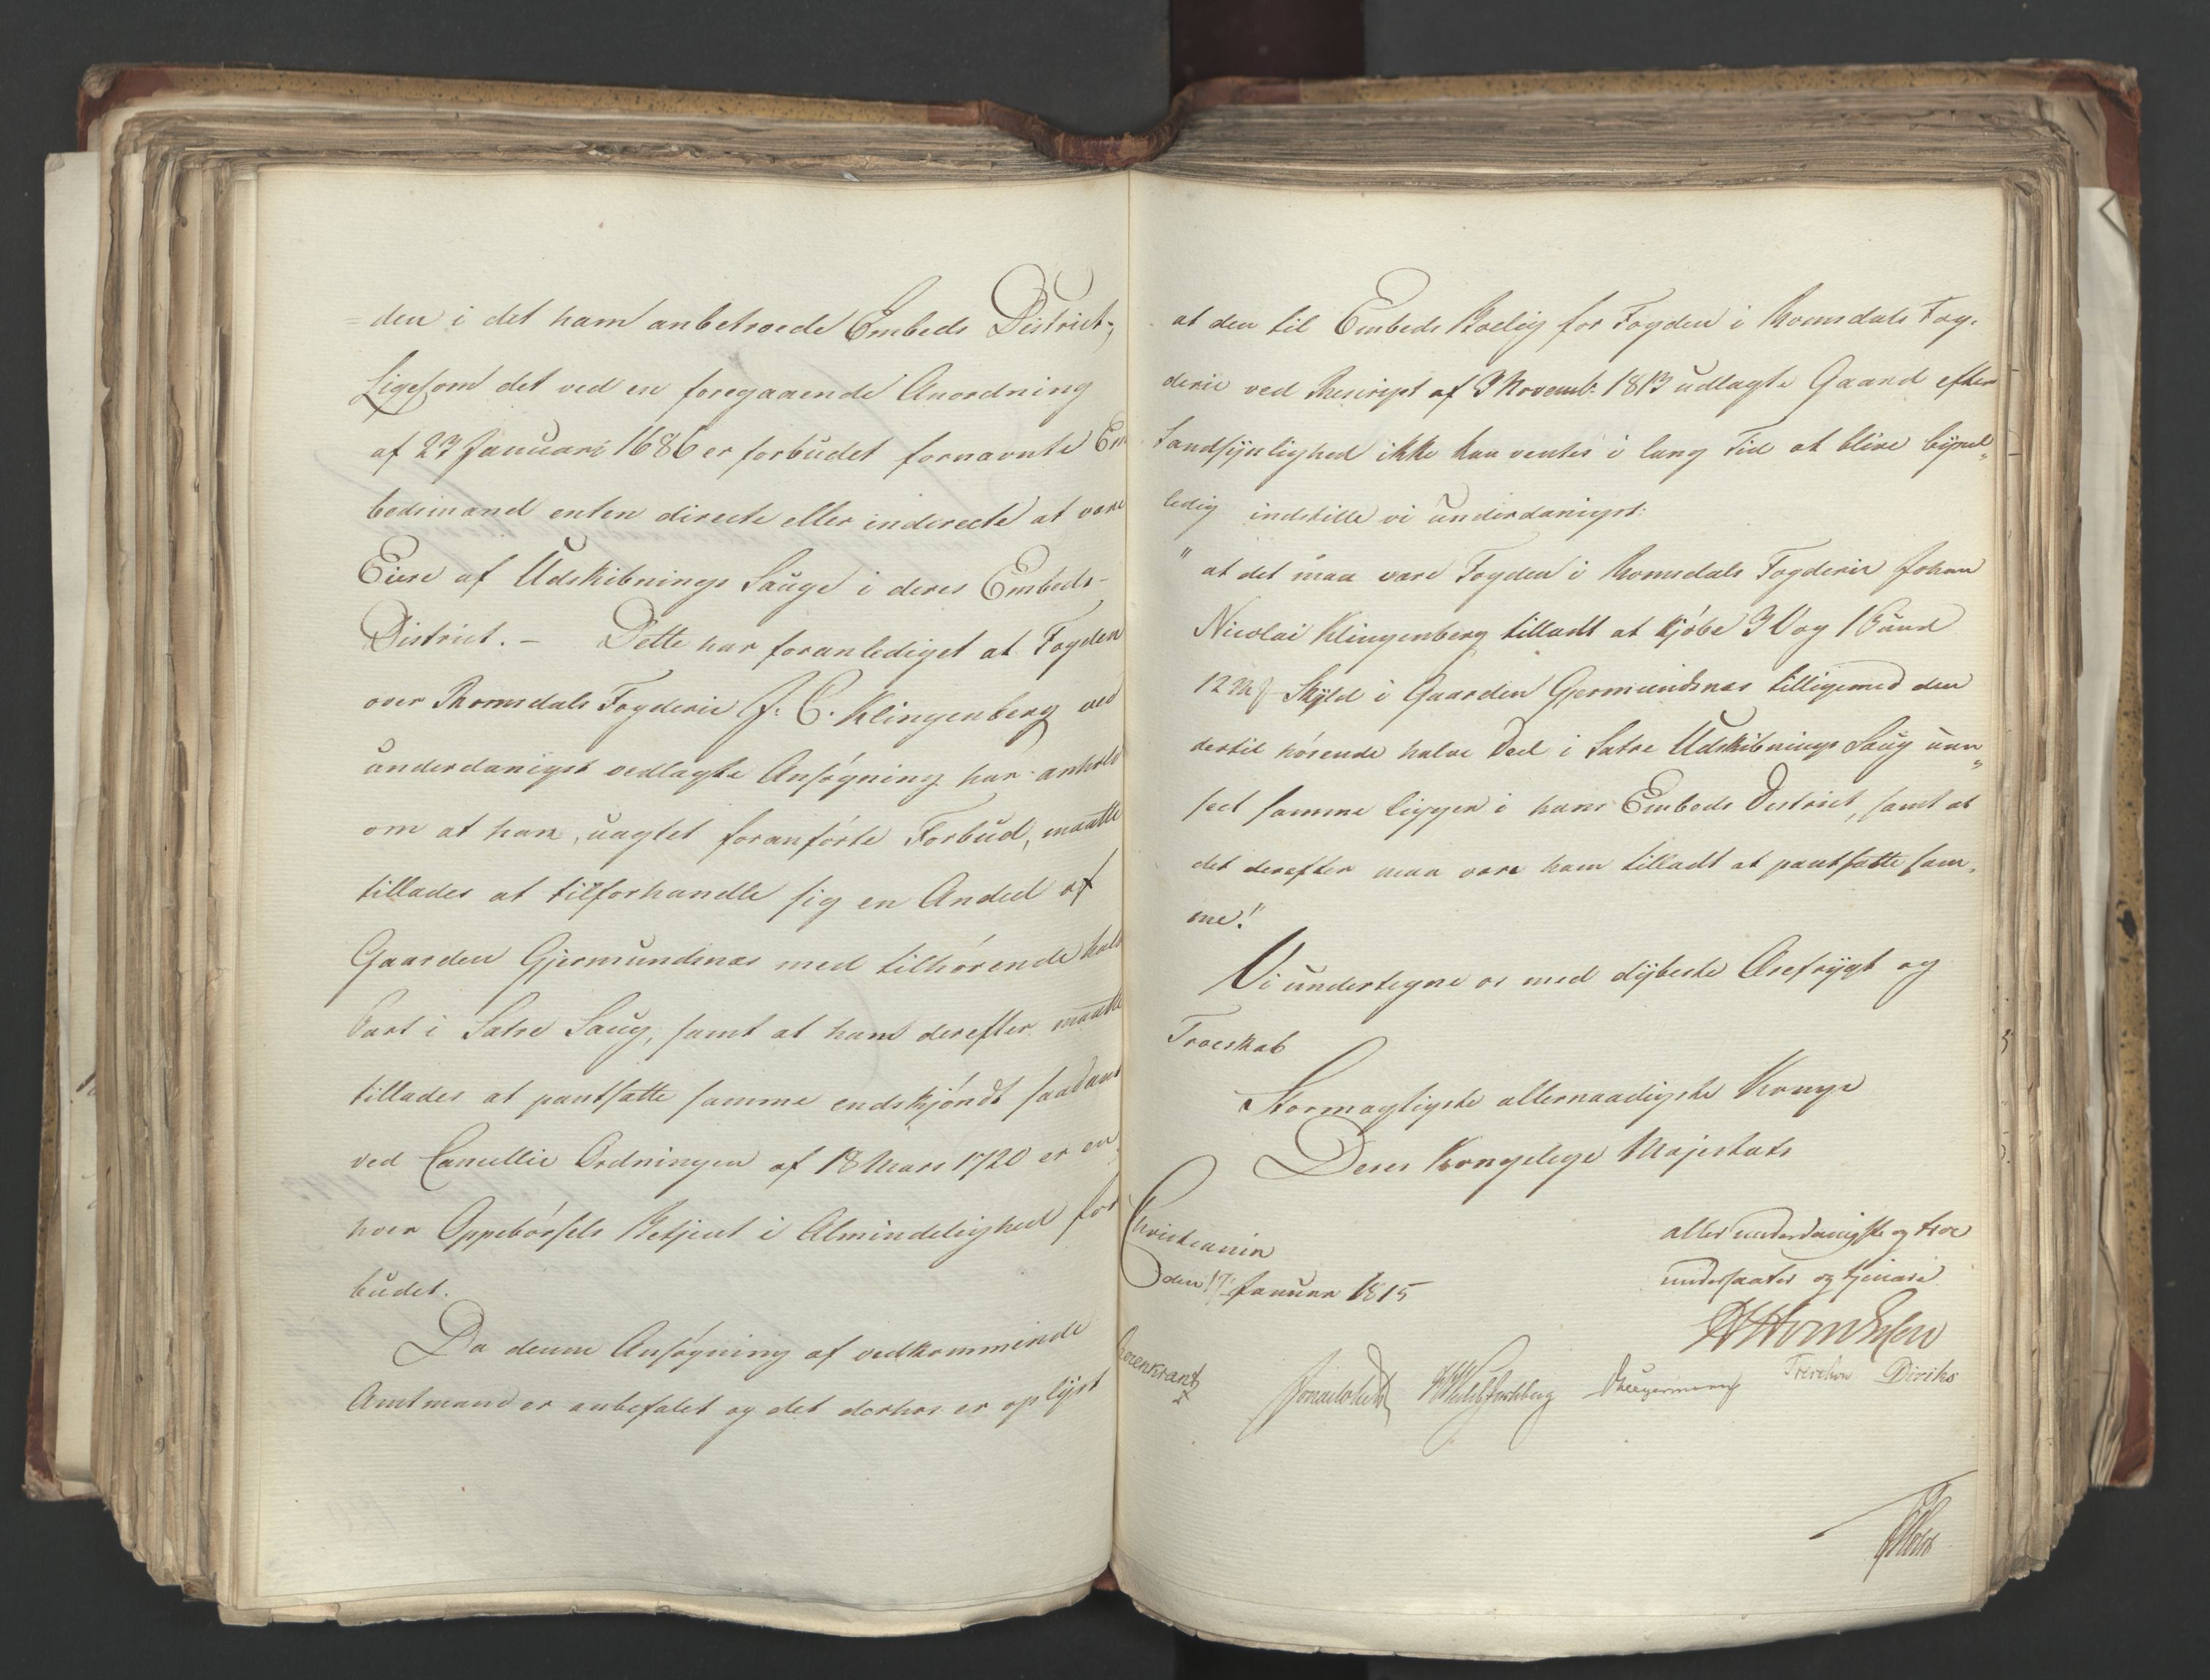 =den i det ham anbetroede Embeds District;
Ligesom det ved en foregaaende Anordning
af 23 Januari 1686 er forbudet fornævnte Em
bedsmænd enten directe eller indirecte at være
Eiere af Udskibnings Sauge i deres Embeds-
District. - Dette har foranlediget at Fogden
over Romsdals Fogderie J: C. Klingenberg ved
underdanigst vedlagte Ansøgning har anholdt
om at han, uagtet foranførte Forbud, maatte
tillades at tilforhandle sig en Andeel af
Gaarden Gjermundsnæs med tilhørende halv
Part i Sætre Saug, samt at ham derefter maatte
tillades at pantsætte samme endskjøndt saadant
ved Cancellie Ordningen af 18 Mars 1720 er en
hver Oppebørsels Betjent i Almindelighed for
budet.
Da denne Ansøgning af vedkommende
Amtmand er anbefalet og det derhos er oplyst
at den til Embeds Boelig for Fogden i Romsdals Fog-
derie ved Rescript af 3 Novemb: 1813 udlagte Gaard efter
Sandsynlighed ikke kan ventes i lang Tid at blive byxel„
ledig indstille vi underdanigst:
" at det maa være Fogden i Romsdals Fogderie Johan
Nicolai Klingenberg tilladt at kjøbe 3 V og 1 Pund
12 Skyld i Gaarden Gjermundsnæs tilligemed den
dertil hørende halve Deel i Sætre Udskibnings Saug uan„
seet samme ligger i hans Embeds District, samt at
det derefter maa være ham tilladt at pantsætte sam-
me!"
Vi undertegne os med dybeste Ærefrygt og
Troeskab
Stormægtigste allernaadigste Konge
Deres Kongelige Majestæts
Christiania
den 17 Januar 1815
allerunderdanigste og troe
undersaatter og tjenere
Rosenkrantz
Sommerhielm
Treschow Diriks